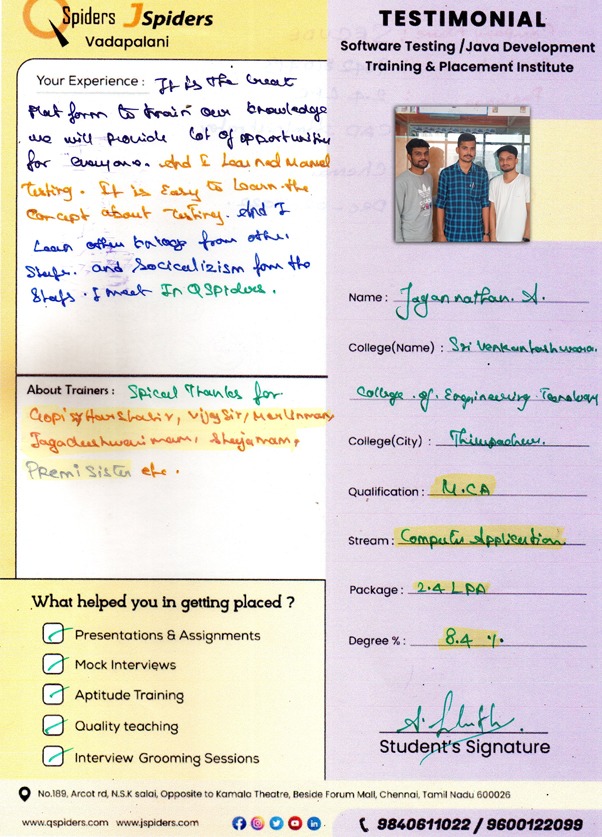 QSpiders JSpiders
Vadapalani
TESTIMONIAL
Software Testing /Java Development
Training & Placement Institute
Your Experience : It is the Great
Plat form to train our knowledge
we will provide lot of opportunities
for everyone. And I Learned Manual
Testing. It is Easy to Learn the
Concept about Testing. And I
Learn other things from other
Staffs. and Socicalizism form the
Staffs. I meet In QSpiders.
About Trainers : Spical Thanks for
Gopi Sir, Vijay Sir,
Jagadeshwari mam,
Premi Sister etc.
What helped you in getting placed ?
Presentations & Assignments
Mock Interviews
Aptitude Training
Quality teaching
Interview Grooming Sessions
Name : Jagannathan. A.
College(Name) : Sri Venkateshwara
College of Engineering Technology
College(City) :
Qualification : M.CA
Stream : Computer Application
Package : 2.4 LPA
Degree % : 8.4 %.
Student's Signature
No.189, Arcot rd, N.S.K salai, Opposite to Kamala Theatre, Beside Forum Mall, Chennai, Tamil Nadu 600026
www.qspiders.com www.jspiders.com
9840611022 / 9600122099